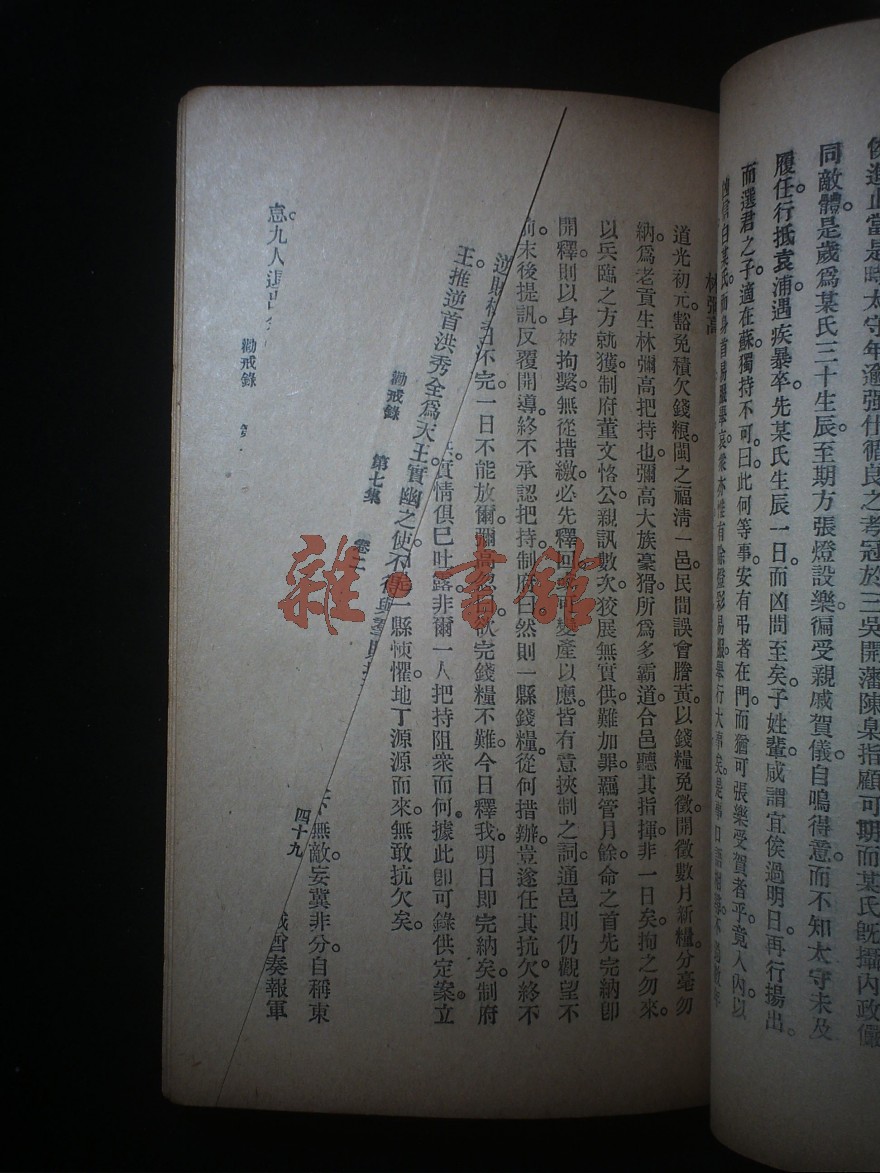 俊進止當是時太守年逾強仕循良之孝冠於三吳開藩陳臬指顧可期而某氏旣攝內政儼
同敵體。是歲爲某氏三十生辰。至期方張燈設樂徧受親戚賀儀自鳴得意而不知太守未及
履任。行抵袁浦遇疾暴卒。先某氏生辰一日而凶問至矣。子姓輩咸謂宜俟過明日。再行揚出。
而選君之子適在蘇獨持不可。曰此何等事安有弔者在門而猶可張樂受賀者乎。竟入內以
林彌高
道光初元豁免積欠錢糧閩之福清一邑民間誤會謄黃以錢糧免徵開徵數月新糧分毫勿
納。爲老貢生林彌高把持也。彌高大族豪猾所爲多霸道合邑聽其指揮非一日矣。拘之勿來。
以兵臨之方就獲。制府董文恪公親訊數次狡展無實供難加罪羈管月餘命之首先完納卽
開釋則以身被拘繫無從措繳必先釋回家可變產以應。皆有意挾制之詞通邑則仍觀望不
前。末後提訊反覆開導終不承認把持。制府曰然則一縣錢糧從何措辦豈遂任其抗欠終不
完一日不能放爾。彌高忽曰欲完錢糧不難今日釋我明日卽完納矣。制府
實情俱已吐露非爾一人把持阻衆而何。據此卽可錄供定案。立
一縣悚懼地丁源源而來無敢抗欠矣。
王。推逆首洪秀全爲天王實幽之使不得與
勸戒錄 第七集 卷二
四十九
無敵。妄冀非分。自稱東
酋奏報軍
勸戒錄